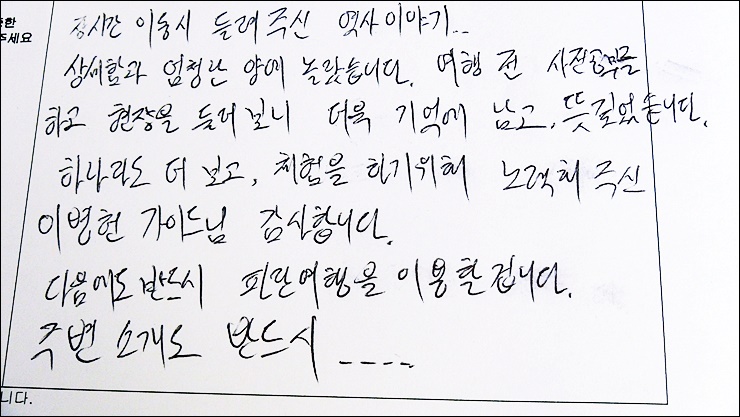 한
주세요
장시간 이동시 들려주신 역사이야기...
상세함과 엄청난 양에 놀랐습니다. 여행 전 사전공부를
하고 현장을 둘러보니 더욱 기억에 남고, 뜻깊었습니다.
하나라도 더 보고, 체험을 하기위해 노력해 주신
이병헌 가이드님 감사합니다.
다음에도 반드시 파란여행을 이용할겁니다.
주변 소개도 반드시 ----
니다.